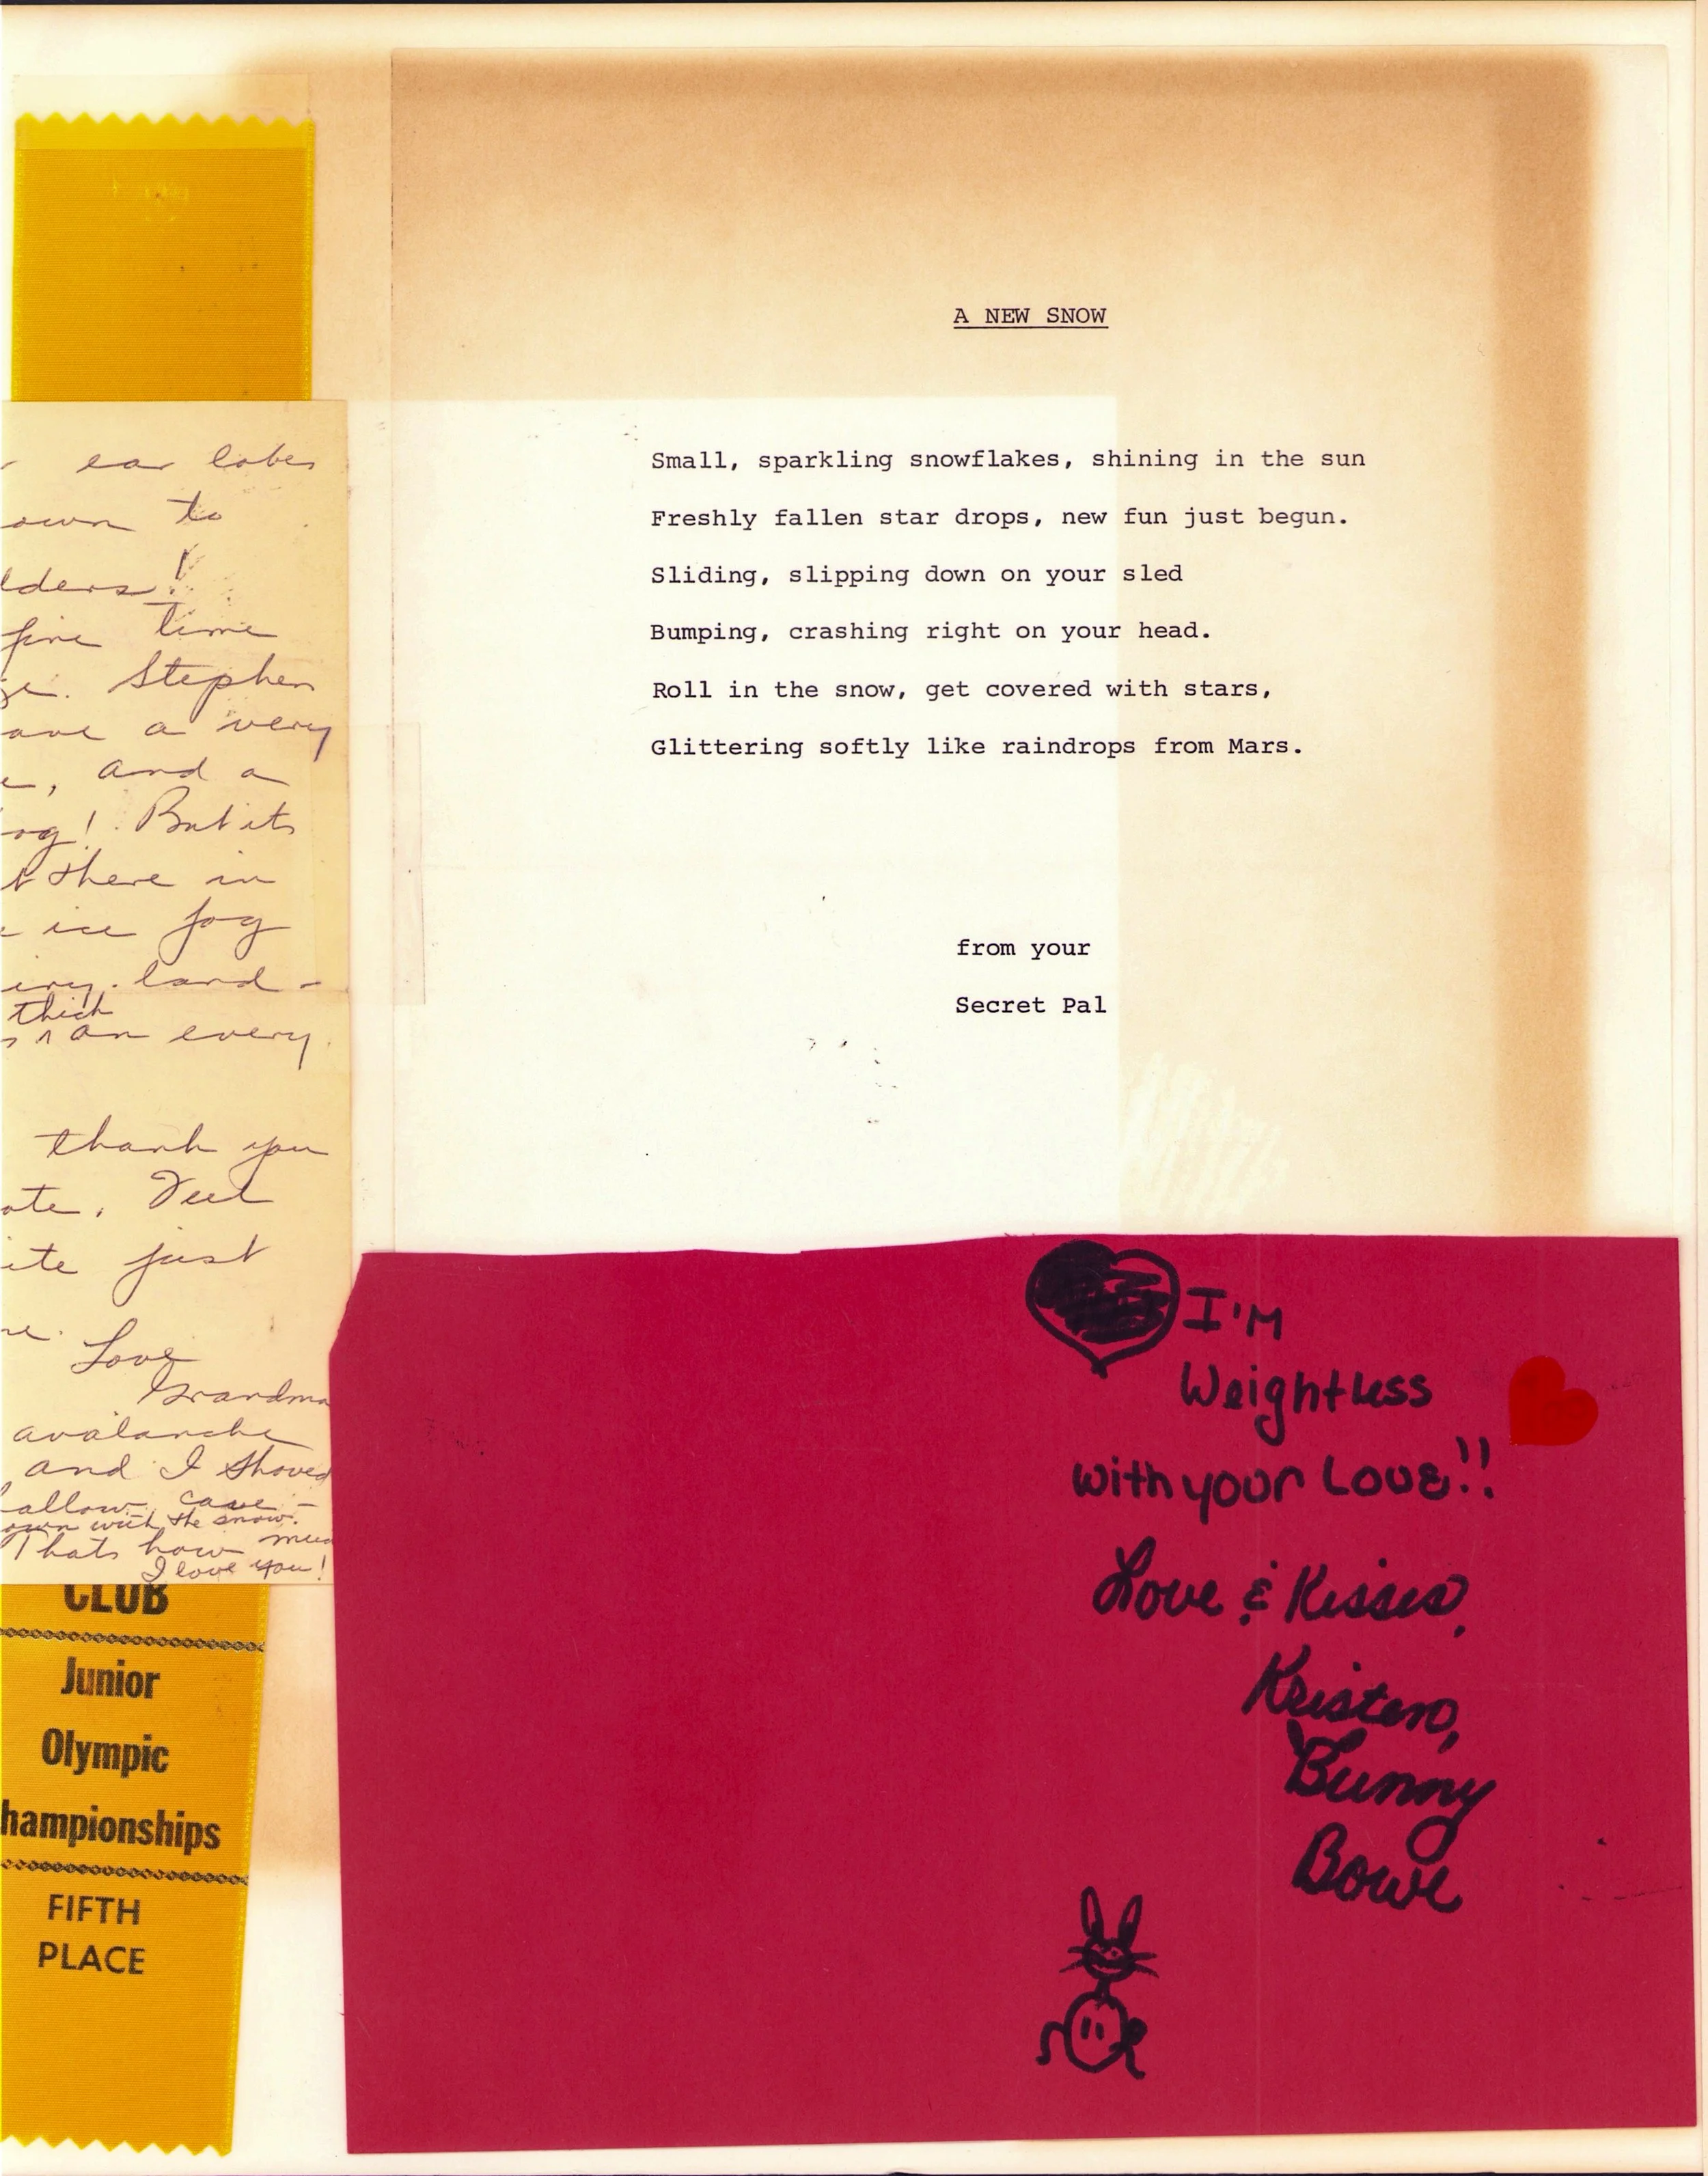 A NEW SNOW
Small, sparkling snowflakes, shining in the sun
Freshly fallen star drops, new fun just begun.
Sliding, slipping down on your sled
Bumping, crashing right on your head.
Roll in the snow, get covered with stars,
Glittering softly like raindrops from Mars.
from your
Secret Pal
ear lobes
own to
lders!
fine time
ge. Stephen
ave a very
e, and a
og! But its
t there in
ice fog
iry land -
thick
s ^ on every
thank you
ote.
ite just
re.
Love
Grandma
avalanche
and I shoved
allow cave -
own with the snow.
Thats how muc
I love you!
CLUB
Junior
Olympic
hampionships
FIFTH
PLACE
I'M
Weightless
with your Love!!
Love & Kisses,
Kristen,
Bunny
Bowe